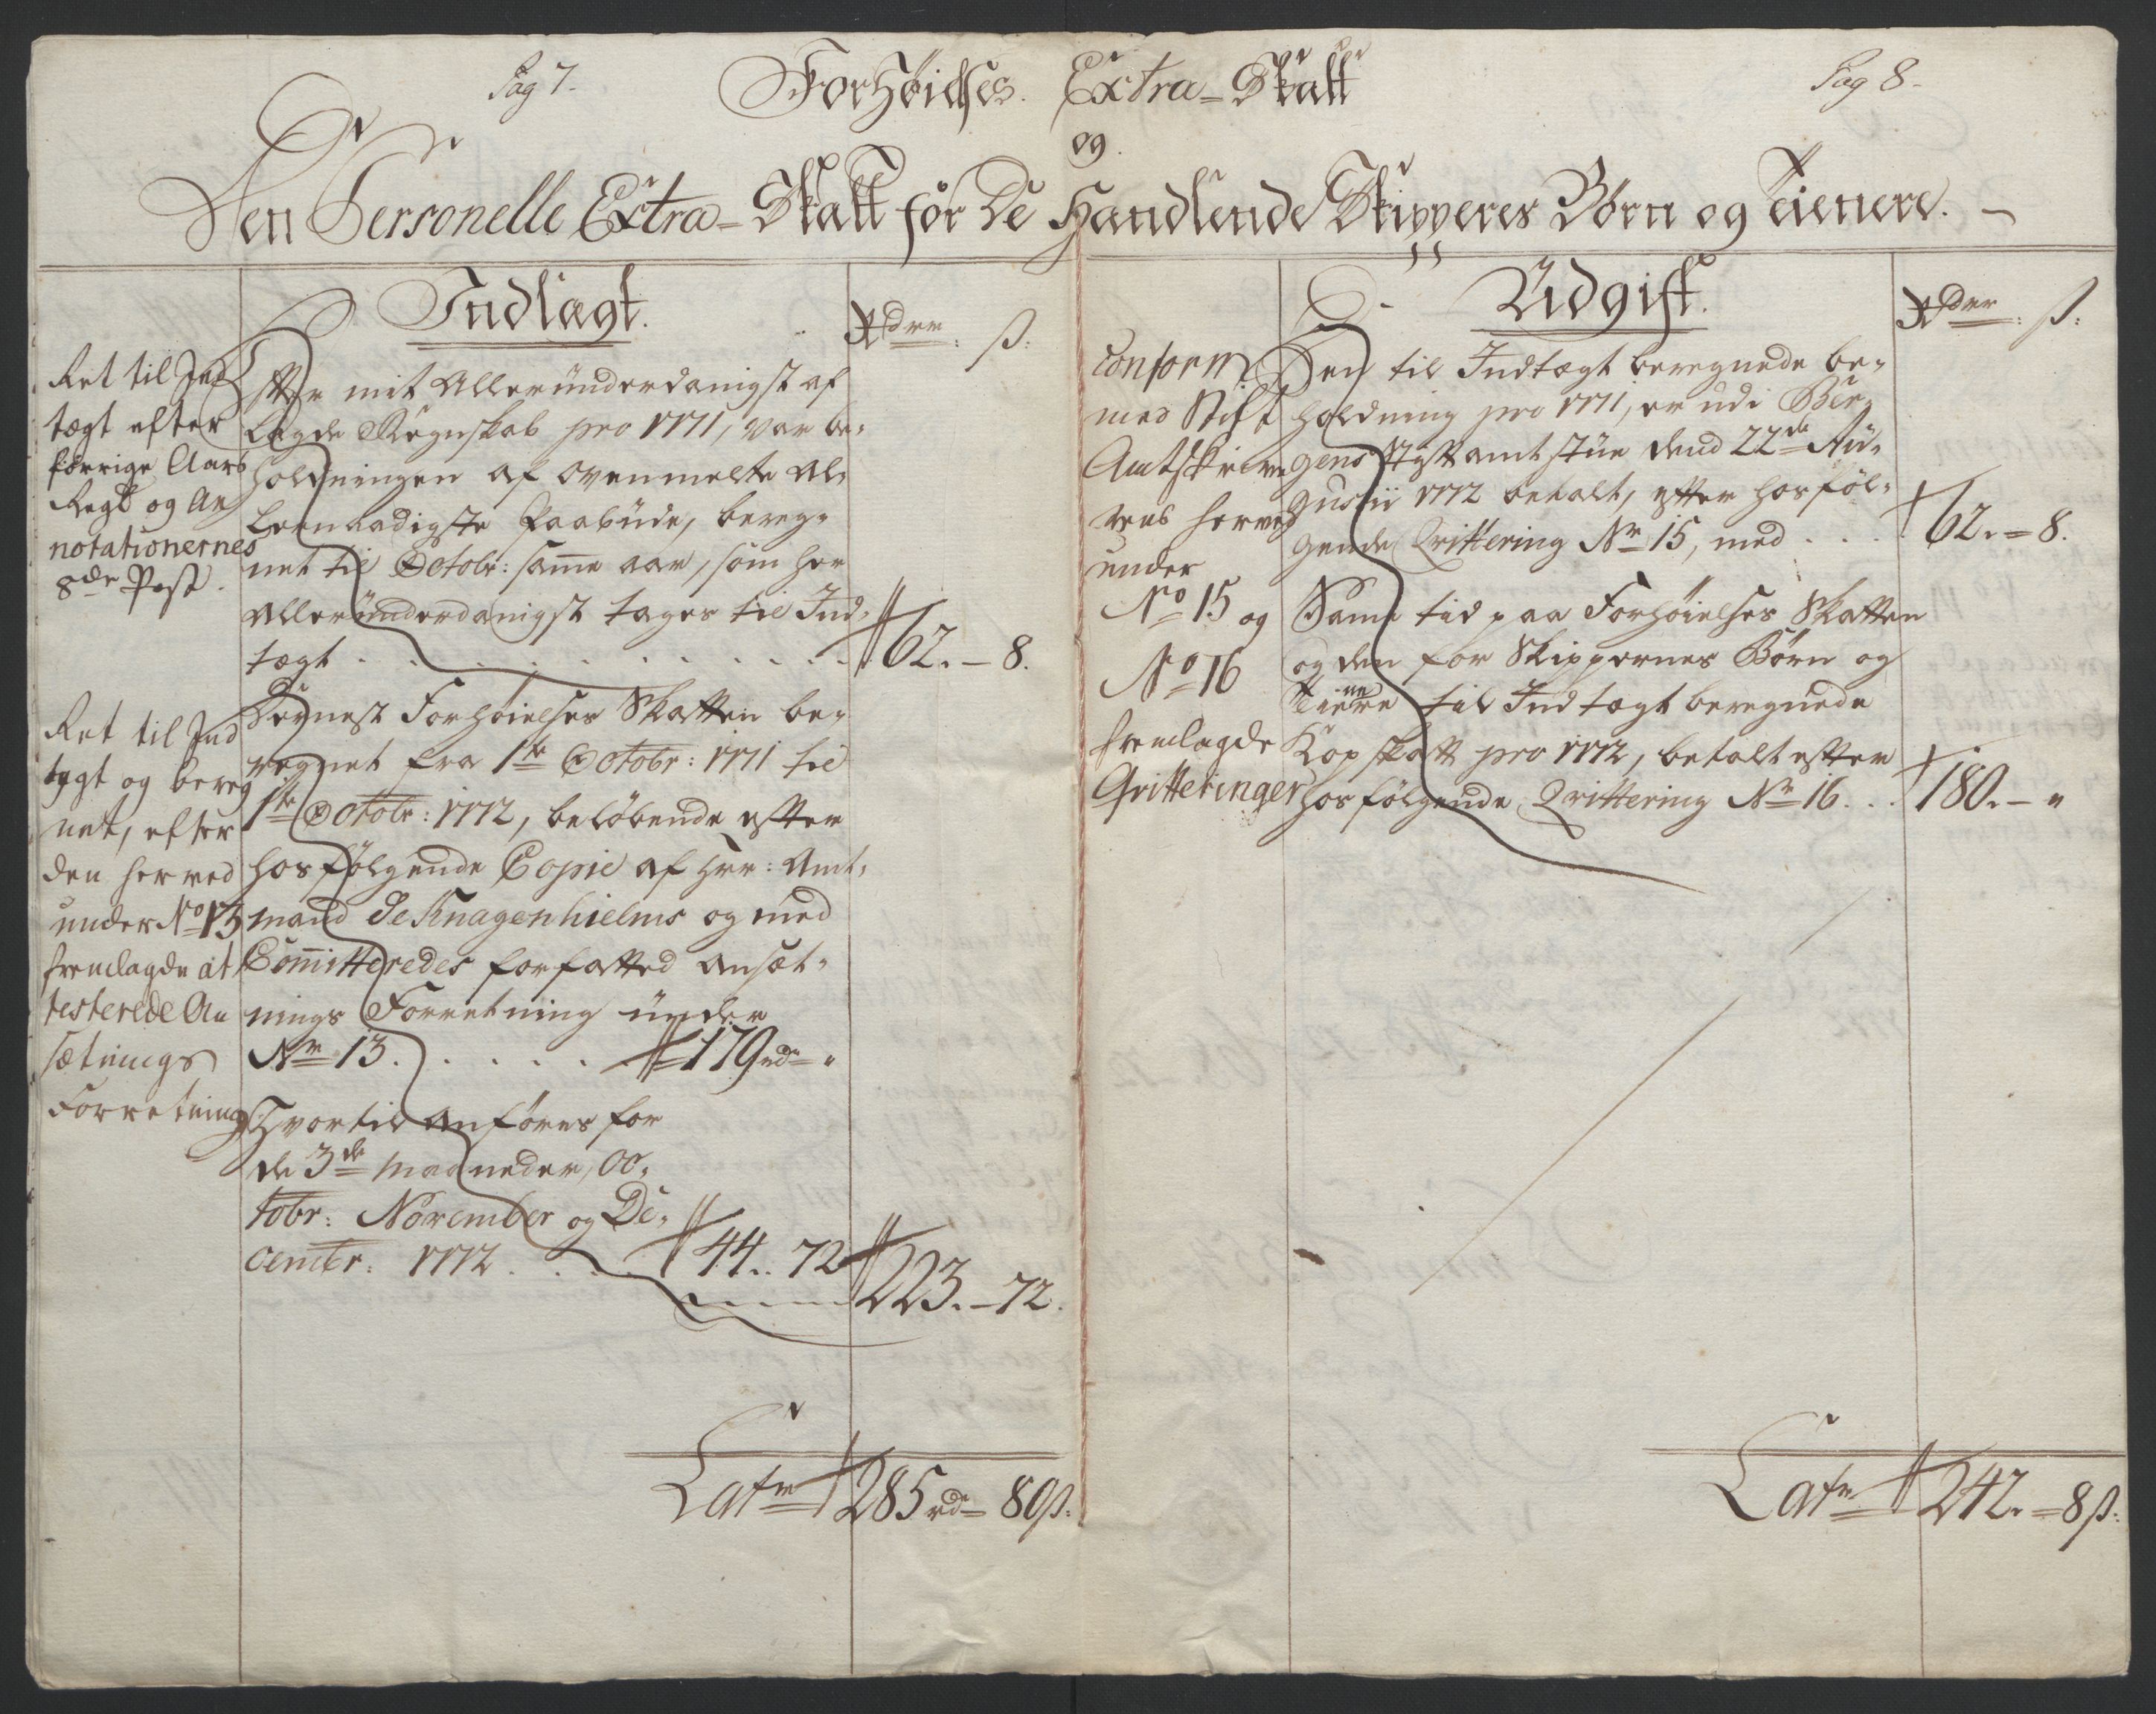 Pag 7.
Forhöielses Extra-Skatt
Pag 8.
og
Den Personelle Extra-Skatt for De Handlende Skipperes Börn og Tienere.
Indtægt.
Rdlr ß:
Ret til Ind
tægt efter
forrige Aars
Regl og An
notationernes
8de Post.
Efter mit Alleründerdanigst af
lagde Regnskab pro 1771, var be-
holdningen af ovenmelte Al-
lernaadigste Paabüde, bereg-
net til Octobr: samme aar, som her
Alleründerdanigst tages til Ind-
tægt . . . . . . . . . 62. - 8.
Ret til Ind
tægt og bereg
net, efter
den herved
under No 13
fremlagde at
testerede An
sætnings
Forretning
Dernest Forhöielses Skatten be-
regnet fra 1te Octobr: 1771 til
1te Octobr: 1772, belöbende efter
hosfölgende Copie af Hrr: Amt-
mand de Knagenhielms og med
Committeredes forfatted ansæt-
nings Forretning ünder
Nr 13. . . . . . 179 rd "
Hvortil anföres for
de 3de maaneder, Oc-
tobr: November og De-
cembr: 1772 . . . . 44.. 72
223. - 72.
Latr 285 rd - 80 ß:
Udgift.
Rdlr ß:
Conform
med Stift
Amtskrive
rens herved
under
No 15 og
No 16
fremlagde
Qvitteringer
Den til Indtægt beregnede be-
holdning pro 1771, er udi Ber-
gens Stiftamtstüe dend 22de Aü-
gustii 1772 betalt, efter hosföl-
gende Qvittering Nr 15, med . . . 62. = 8.
Samme tid paa Forhöielses Skatten
og den for Skippernes Börn og
Tienere til Indtægt beregnede
Kopskatt pro 1772, betalt efter
hosfölgende Qvittering Nr 16. . . 180. - "
Latr 242. = 8 ß: